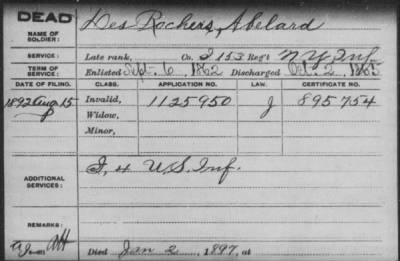 DEAD
NAME OF SOLDIER: Des Rochers, Abelard
SERVICE: Late rank, Co. I 153 Reg't N.Y. Inf.
TERM OF SERVICE: Enlisted Sept. 6, 1862 Discharged Oct. 2, 1865
DATE OF FILING. CLASS. APPLICATION NO. LAW. CERTIFICATE NO.
1892 Aug 15 Invalid, 1125950 J 895754
Widow,
Minor,
ADDITIONAL SERVICES: I, 4 U.S. Inf.
REMARKS:
Died Jan 2, 1897, at